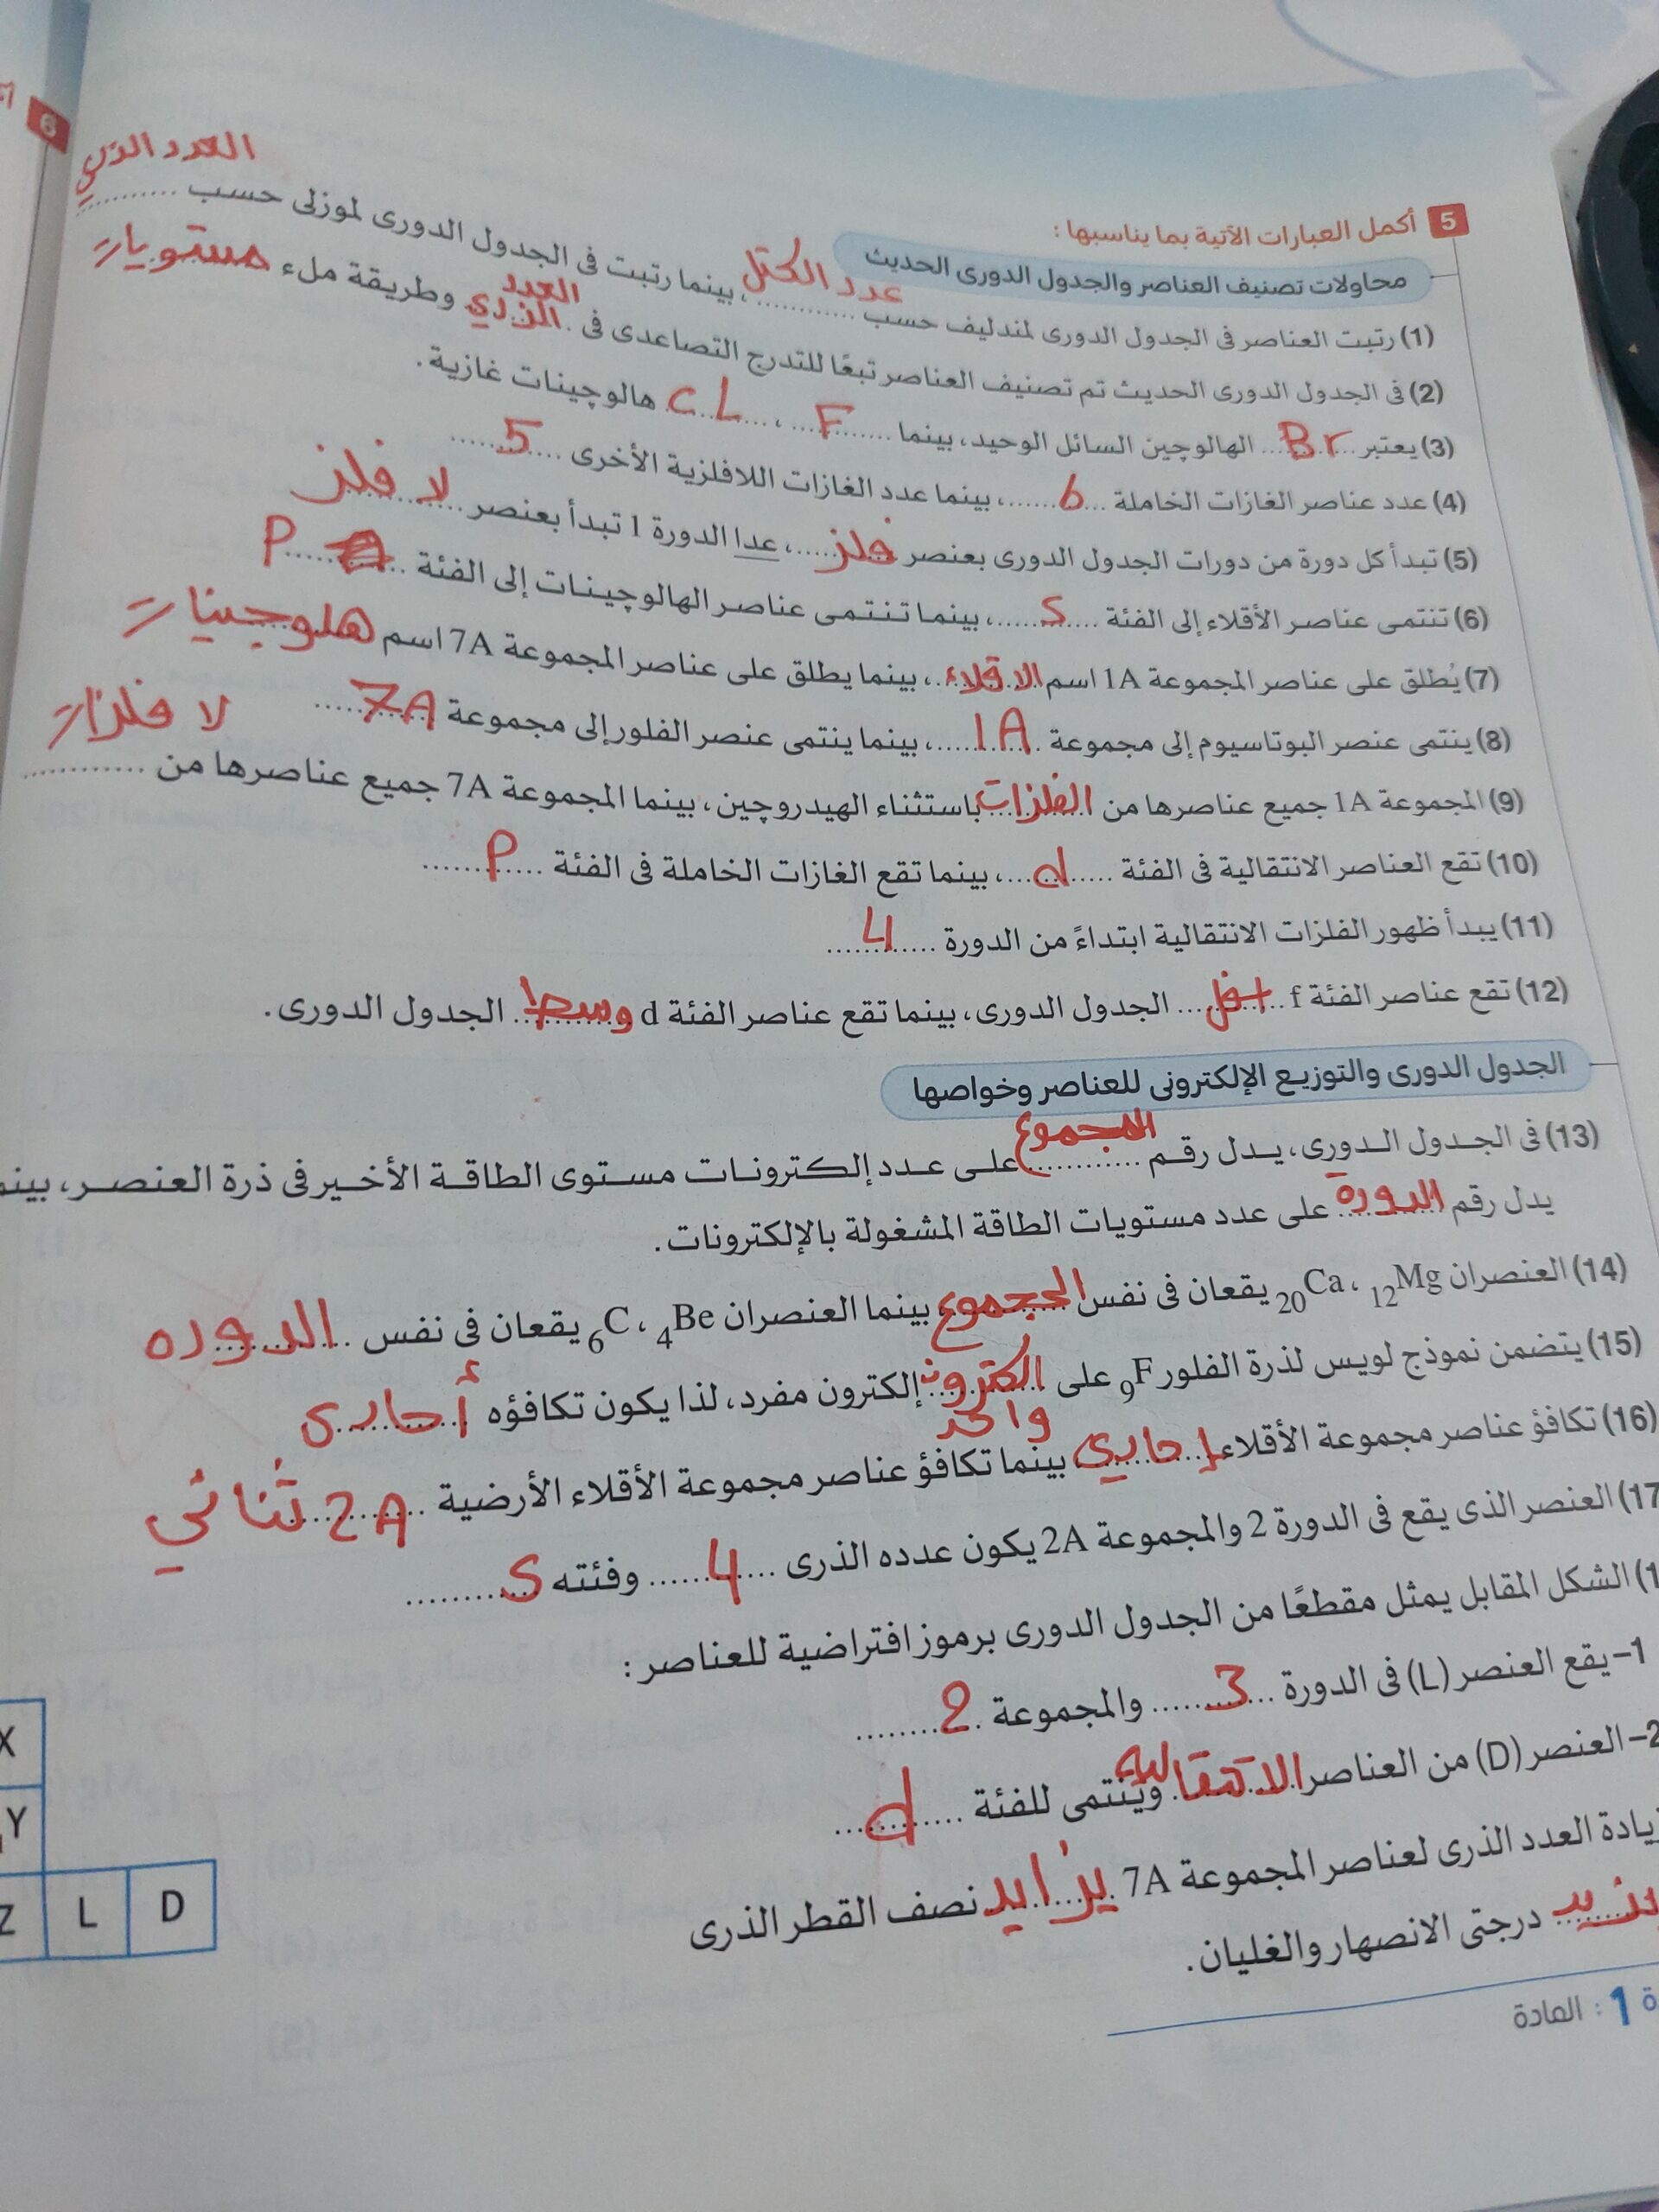 6
5 أكمل العبارات الآتية بما يناسبها :
محاولات تصنيف العناصر والجدول الدورى الحديث
(1) رتبت العناصر فى الجدول الدورى لمندليف حسب عدد الكتل ، بينما رتبت فى الجدول الدورى لموزلى حسب العدد الذري
(2) فى الجدول الدورى الحديث تم تصنيف العناصر تبعًا للتدرج التصاعدى فى العدد الذري وطريقة ملء مستويات
(3) يعتبر Br الهالوچين السائل الوحيد، بينما F ، CL هالوچينات غازية.
(4) عدد عناصر الغازات الخاملة 6 ، بينما عدد الغازات اللافلزية الأخرى 5
(5) تبدأ كل دورة من دورات الجدول الدورى بعنصر فلز ، عدا الدورة 1 تبدأ بعنصر لا فلز
(6) تنتمى عناصر الأقلاء إلى الفئة s ، بينما تنتمى عناصر الهالوچينات إلى الفئة P
(7) يُطلق على عناصر المجموعة 1A اسم الاقلاء ، بينما يطلق على عناصر المجموعة 7A اسم هلوجينات
(8) ينتمى عنصر البوتاسيوم إلى مجموعة 1A ، بينما ينتمى عنصر الفلور إلى مجموعة 7A
(9) المجموعة 1A جميع عناصرها من الفلزات باستثناء الهيدروچين، بينما المجموعة 7A جميع عناصرها من لا فلزات
(10) تقع العناصر الانتقالية فى الفئة d ، بينما تقع الغازات الخاملة فى الفئة P
(11) يبدأ ظهور الفلزات الانتقالية ابتداءً من الدورة 4
(12) تقع عناصر الفئة f اسفل الجدول الدورى، بينما تقع عناصر الفئة d وسط الجدول الدورى.
الجدول الدورى والتوزيع الإلكترونى للعناصر وخواصها
(13) فى الجدول الدورى، يدل رقم المجموع على عدد إلكترونات مستوى الطاقة الأخير فى ذرة العنصر، بينم
يدل رقم الدورة على عدد مستويات الطاقة المشغولة بالإلكترونات.
(14) العنصران 12Mg ، 20Ca يقعان فى نفس المجموع بينما العنصران 4Be ، 6C يقعان فى نفس الدوره
(15) يتضمن نموذج لويس لذرة الفلور 9F على الكترون واحد إلكترون مفرد، لذا يكون تكافؤه أحادى
(16) تكافؤ عناصر مجموعة الأقلاء احادي بينما تكافؤ عناصر مجموعة الأقلاء الأرضية 2A ثنائي
(17 العنصر الذى يقع فى الدورة 2 والمجموعة 2A يكون عدده الذرى 4 وفئته S
الشكل المقابل يمثل مقطعًا من الجدول الدورى برموز افتراضية للعناصر :
1- يقع العنصر (L) فى الدورة 3 والمجموعة 2
2- العنصر (D) من العناصر الانتقاليه وينتمى للفئة d
X
Y
Z L D
زيادة العدد الذرى لعناصر المجموعة 7A يزايد نصف القطر الذرى
درجتى الانصهار والغليان.
1 : المادة